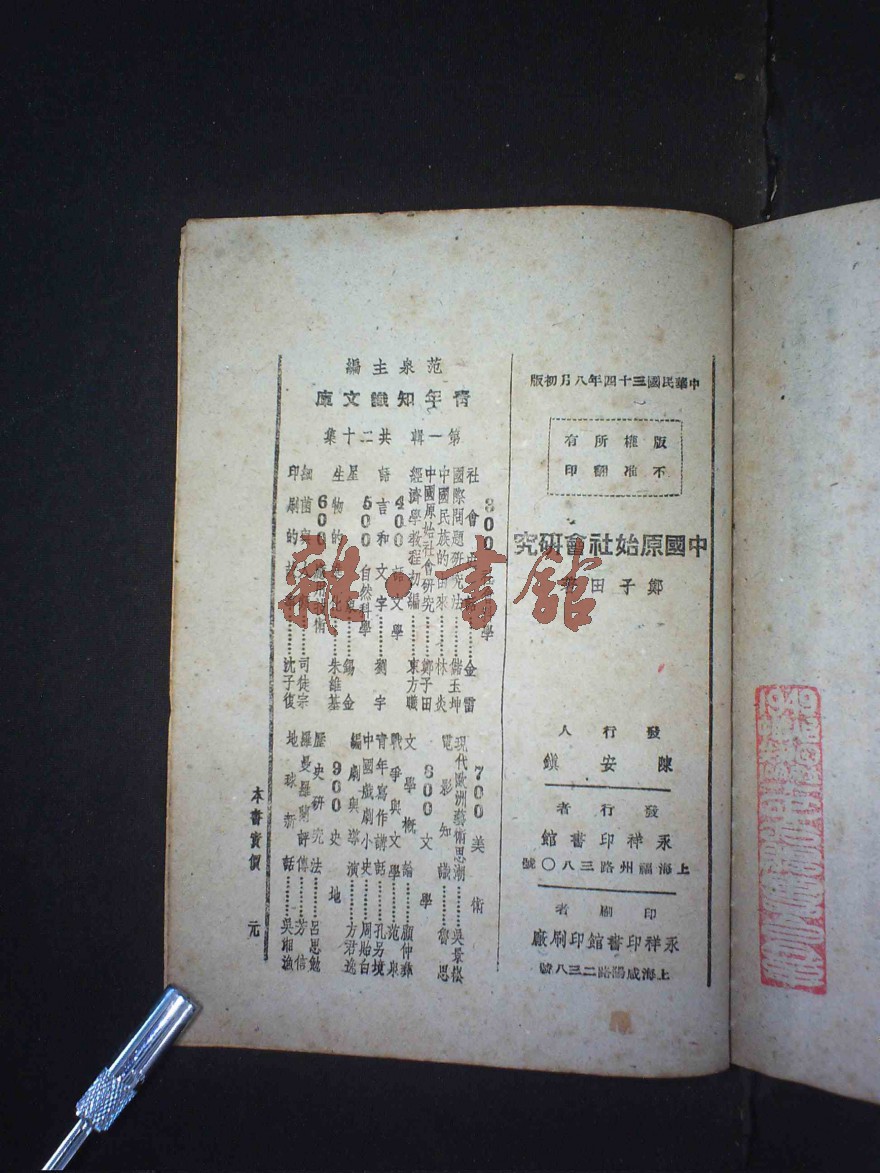 中華民國三十四年八月初版
版權所有
不准翻印
中國原始社會研究
鄭子田著
發行人
陳安鎮
發行者
永祥印書館
上海福州路三八〇號
印刷者
永祥印書館印刷廠
上海咸陽路二三八號
范泉主編
青年知識文庫
第一輯 共二十集
國際問題研究法………儲玉坤
中國民族的由來………林炎
中國原始社會研究………鄭子田
經濟學教程初編………東方曦
400 語文學
語言和文字………劉宇
500 自然科學
600 應用技術
印刷的故事………沈子復
700 美術
現代歐洲藝術思潮………吳景崧
電影知識………魯思
800 文學
文學概論………顧仲彝
戰爭與文學………范泉
青年寫作講話………孔另境
中國戲劇小史………周貽白
編劇與導演………方君逸
900 史地
歷史研究法………呂思勉
羅曼羅蘭評傳………芳信
地球新話………吳湘漁
本書實價 元
雜·書館
1949